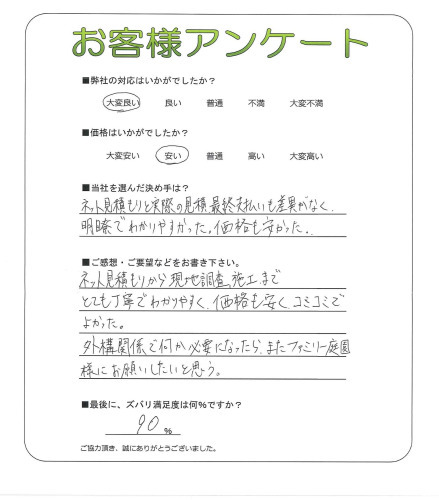 お客様アンケート
■弊社の対応はいかがでしたか?
大変良い 良い 普通 不満 大変不満
■価格はいかがでしたか?
大変安い 安い 普通 高い 大変高い
■当社を選んだ決め手は?
ネット見積もりと実際の見積、最終支払いも差異がなく、
明瞭でわかりやすかった。価格も安かった。
■ご感想・ご要望などをお書き下さい。
ネット見積もりから現地調査、施工まで
とても丁寧でわかりやすく、価格も安く、コミコミで
よかった。
外構関係で何か必要になったら、またファミリー庭園
様にお願いしたいと思う。
■最後に、ズバリ満足度は何%ですか?
90 %
ご協力頂き、誠にありがとうございました。